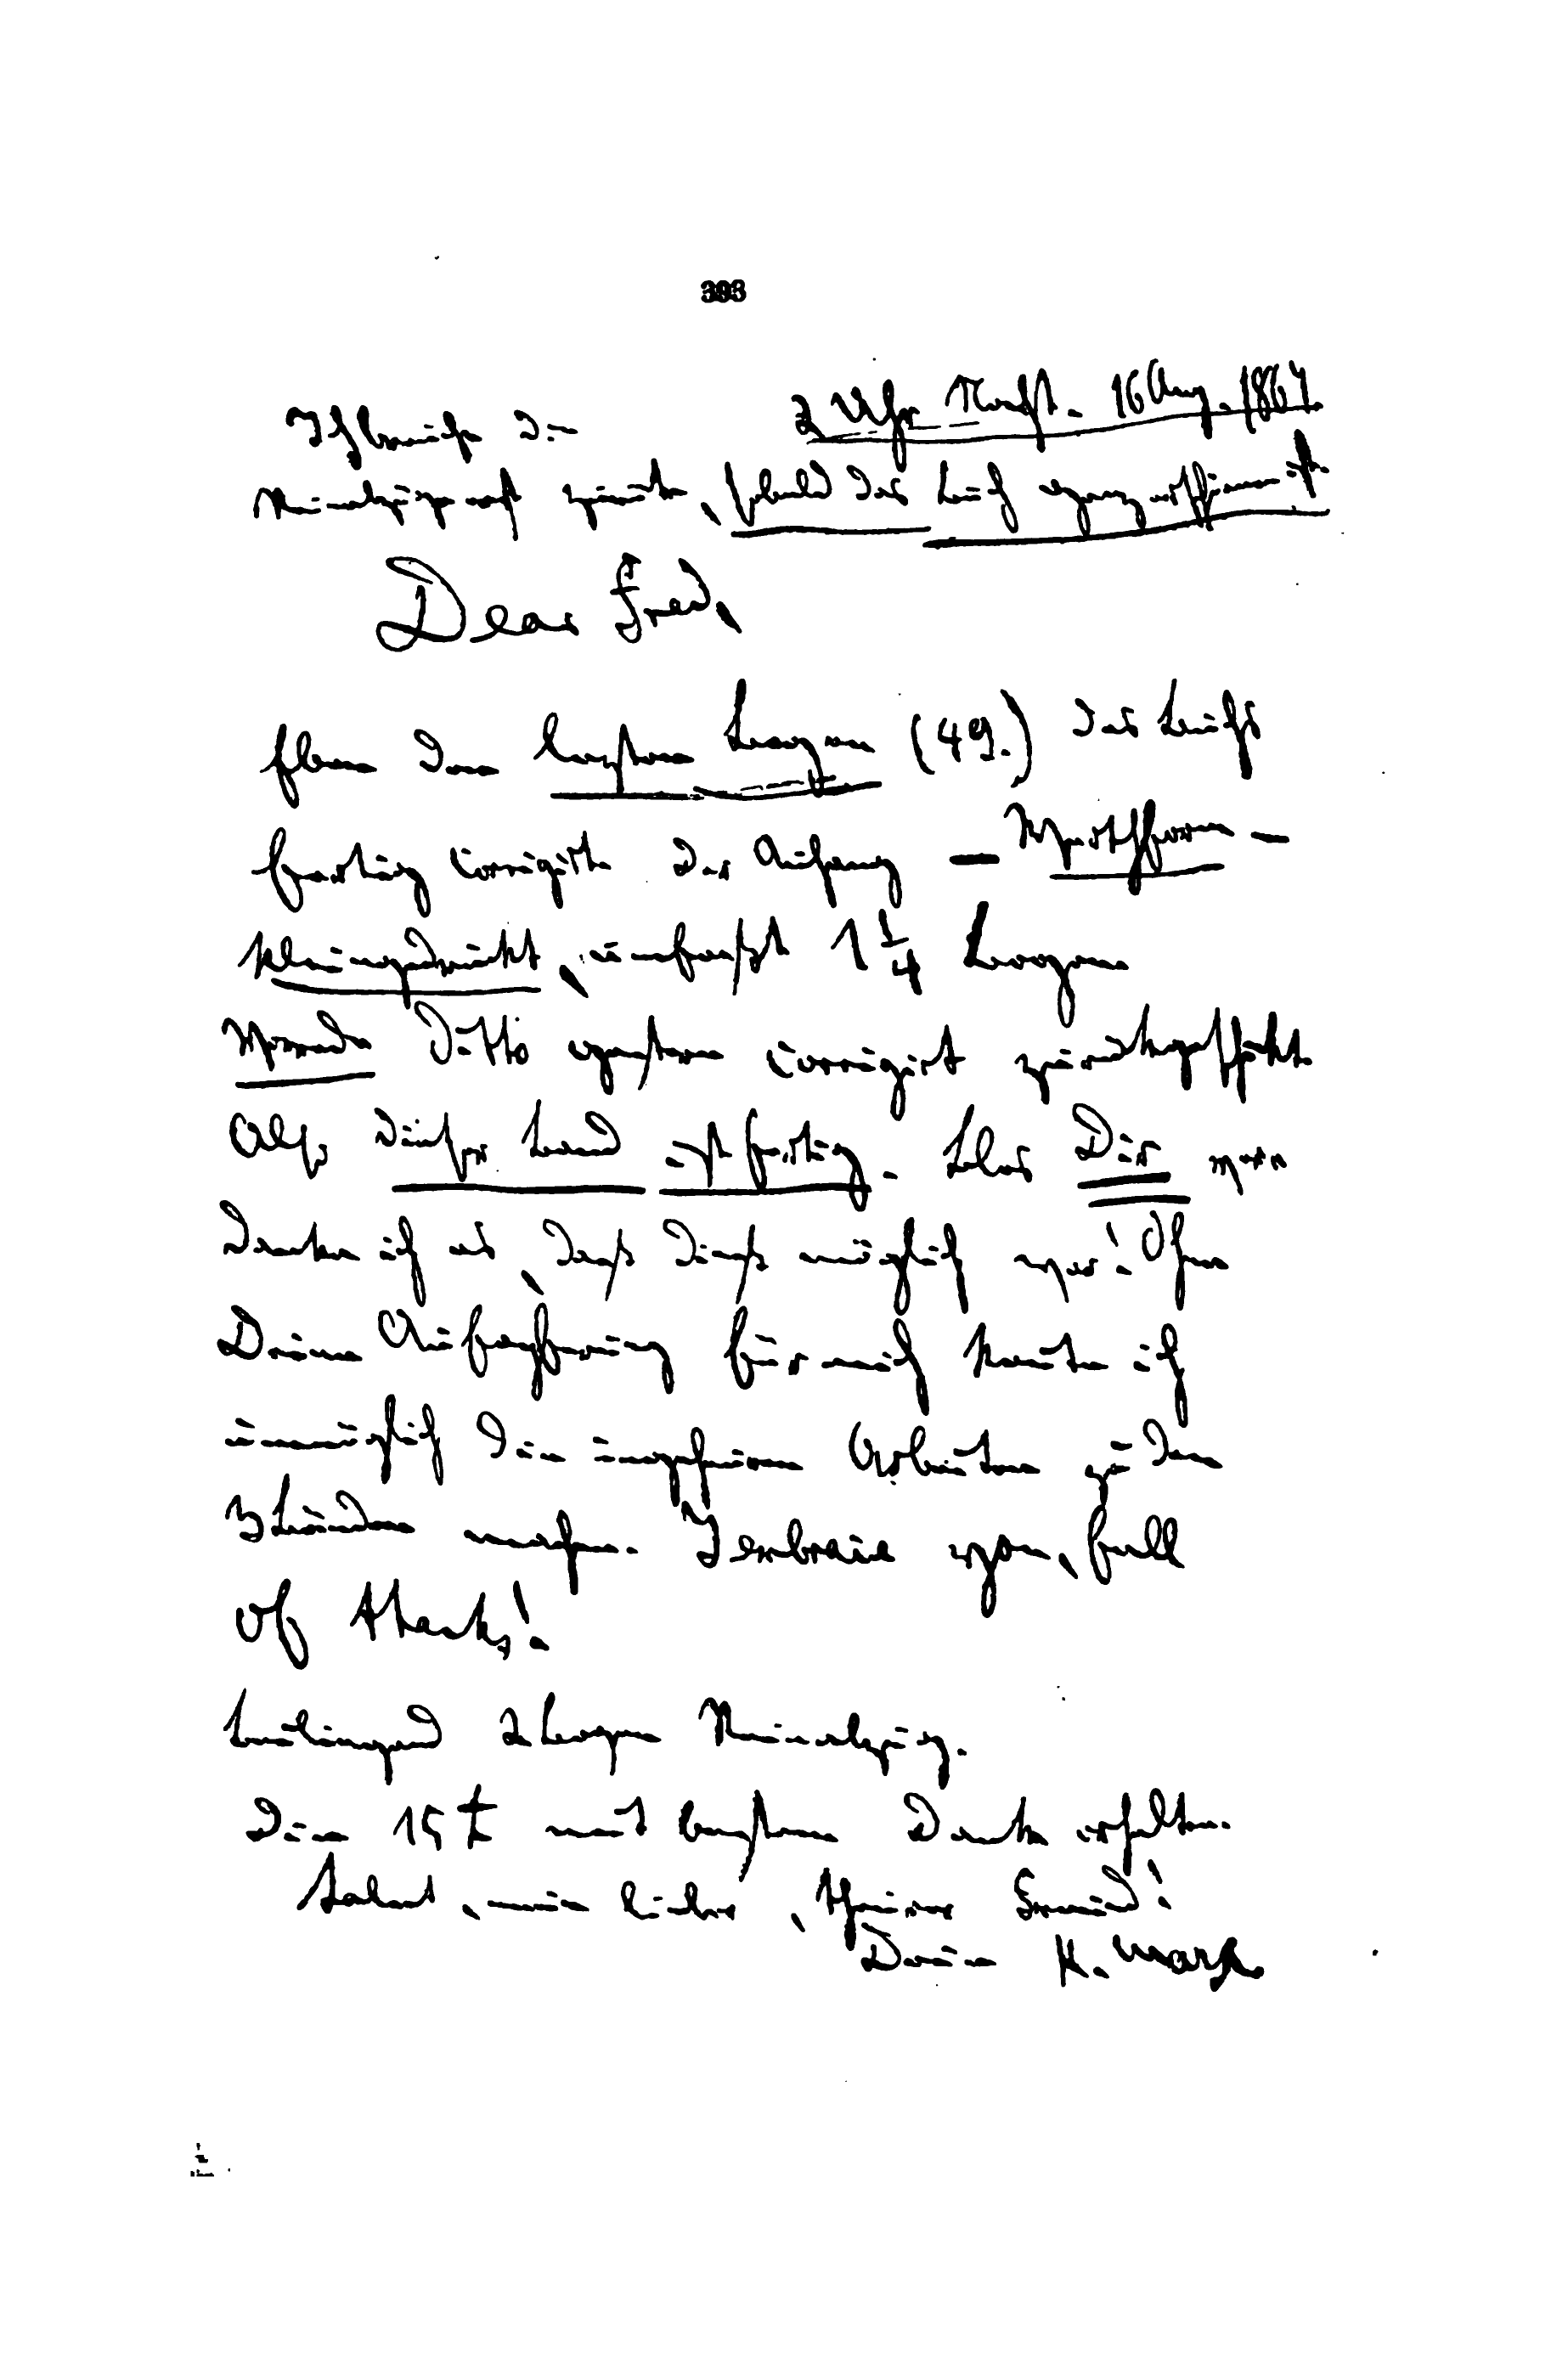 393
2 Uhr Nacht. 16 Aug. 1867.
Ich brauche die
Reinabzüge erst zurück, sobald das Buch ganz erschienen ist.
Dear Fred,
Eben den letzten Bogen (49.) des Buchs
fertig corrigirt. Der Anhang – Werthform –
kleingedruckt, umfaßt 1 1/4 Bogen.
Vorrede ditto gestern corrigirt zurückgeschickt.
Also dieser Band ist fertig. Blos Dir ver-
danke ich es, daß dieß möglich war! Ohne
Deine Aufopferung für mich konnte ich
unmöglich die ungeheuren Arbeiten zu den
3 Bänden machen. I embrace you, full
of thanks!
Beiliegend 2 Bogen Reinabzug.
Die 15 £ mit bestem Dank erhalten.
Salut, mein lieber, theurer Freund!
Dein K. Marx